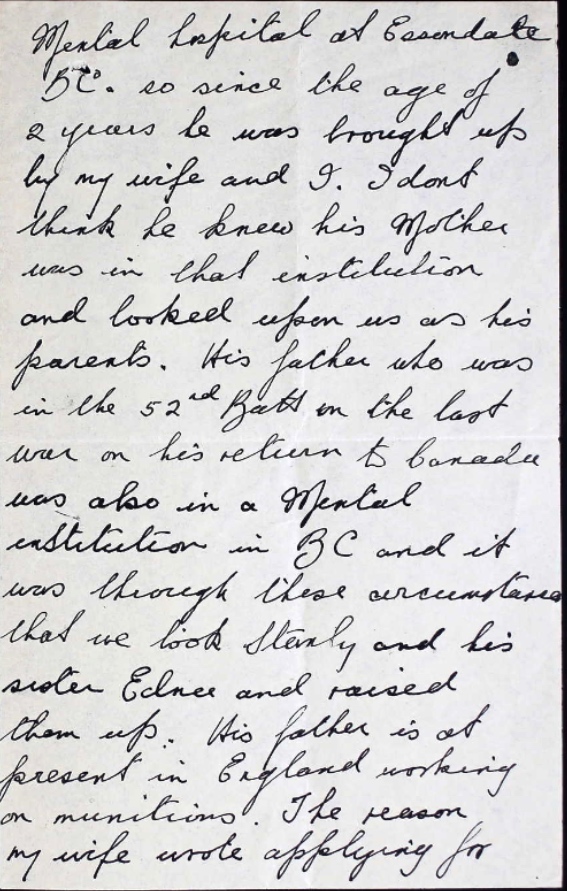 Mental hospital at Essondale
BC. so since the age of
2 years he was brought up
by my wife and I. I dont
think he knew his Mother
was in that institution
and looked upon us as his
parents. His father who was
in the 52nd Batt in the last
war on his return to Canada
was also in a Mental
institution in BC and it
was through these circumstances
that we took Stanly and his
sister Ednee and raised
them up. His father is at
present in England working
on munitions. The reason
my wife wrote applying for